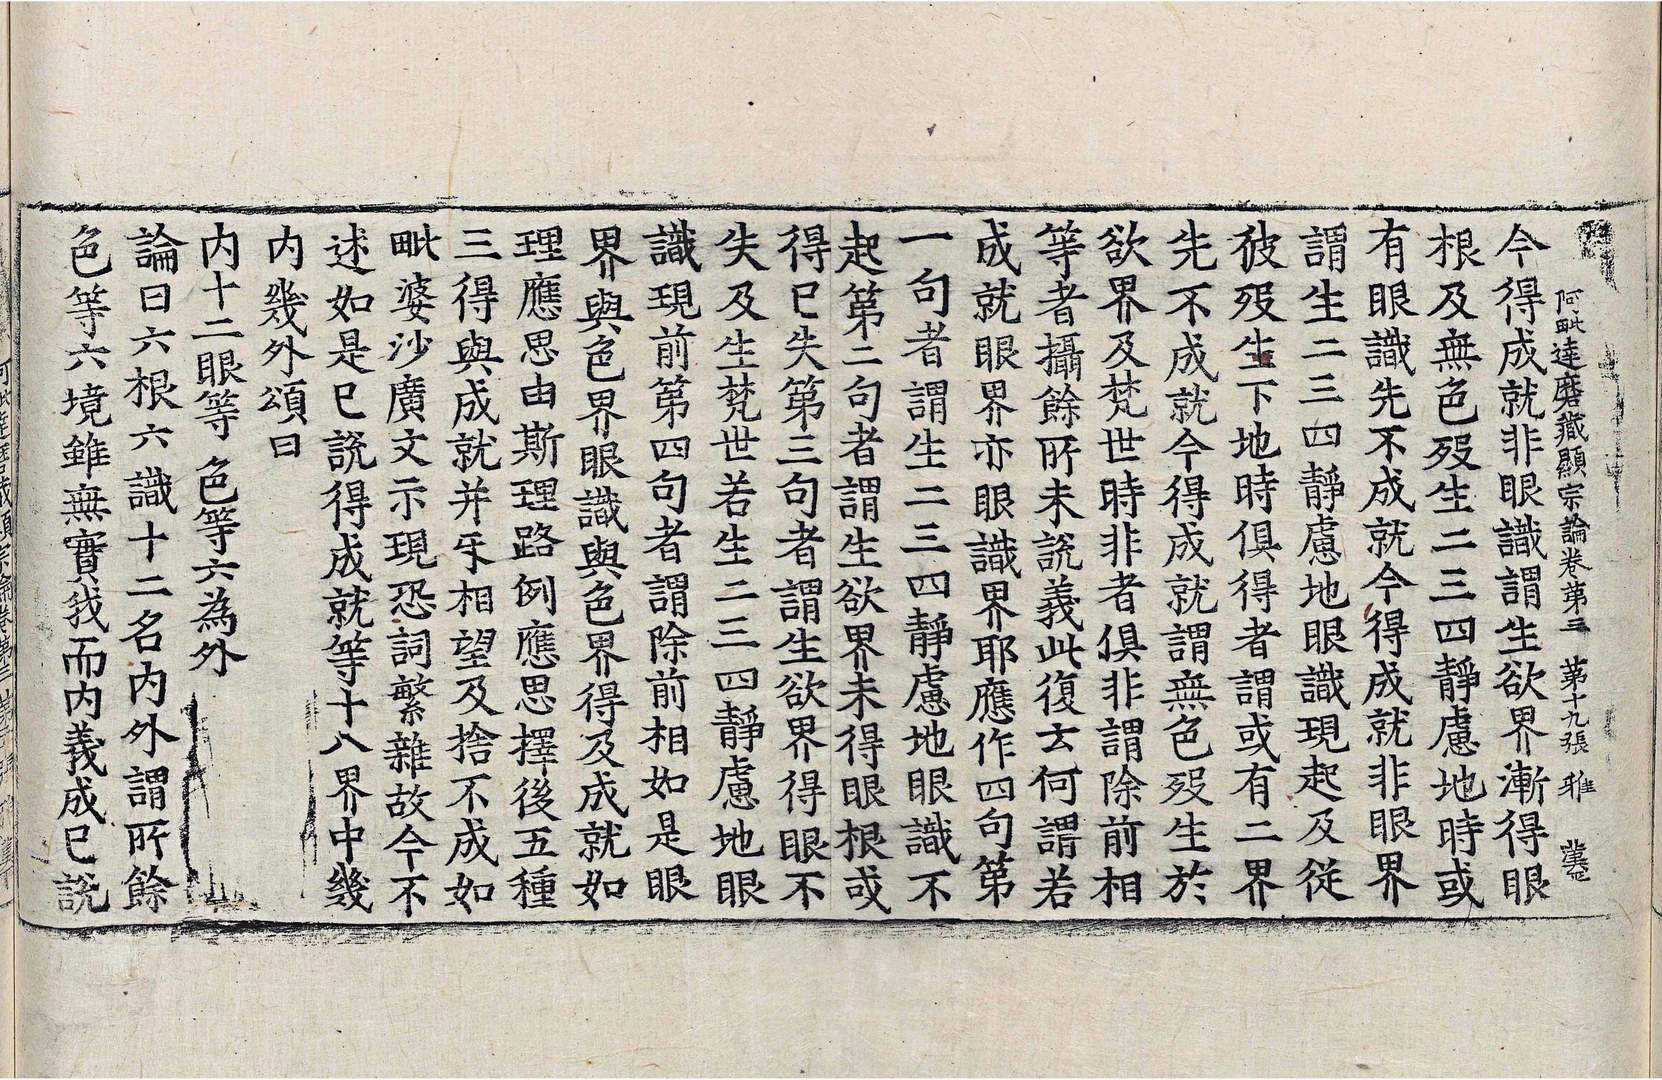 阿毗達磨藏顯宗論卷第三　第十九張　雅
今得成就非眼識謂生欲界漸得眼
根及無色歿生二三四靜慮地時或
有眼識先不成就今得成就非眼界
謂生二三四靜慮地眼識現起及從
彼歿生下地時俱得者謂或有二界
先不成就今得成就謂無色歿生於
欲界及梵世時非者俱非謂除前相
等者攝餘所未說義此復云何謂若
成就眼界亦眼識界耶應作四句第
一句者謂生二三四靜慮地眼識不
起第二句者謂生欲界未得眼根或
得已失第三句者謂生欲界得眼不
失及生梵世若生二三四靜慮地眼
識現前第四句者謂除前相如是眼
界與色界眼識與色界得及成就如
理應思由斯理路例應思擇後五種
三得與成就并㸦相望及捨不成如
毗婆沙廣文示現恐詞繁雜故今不
述如是已說得成就等十八界中幾
內幾外頌曰
內十二眼等　色等六為外
論曰六根六識十二名內外謂所餘
色等六境雖無實我而內義成已說